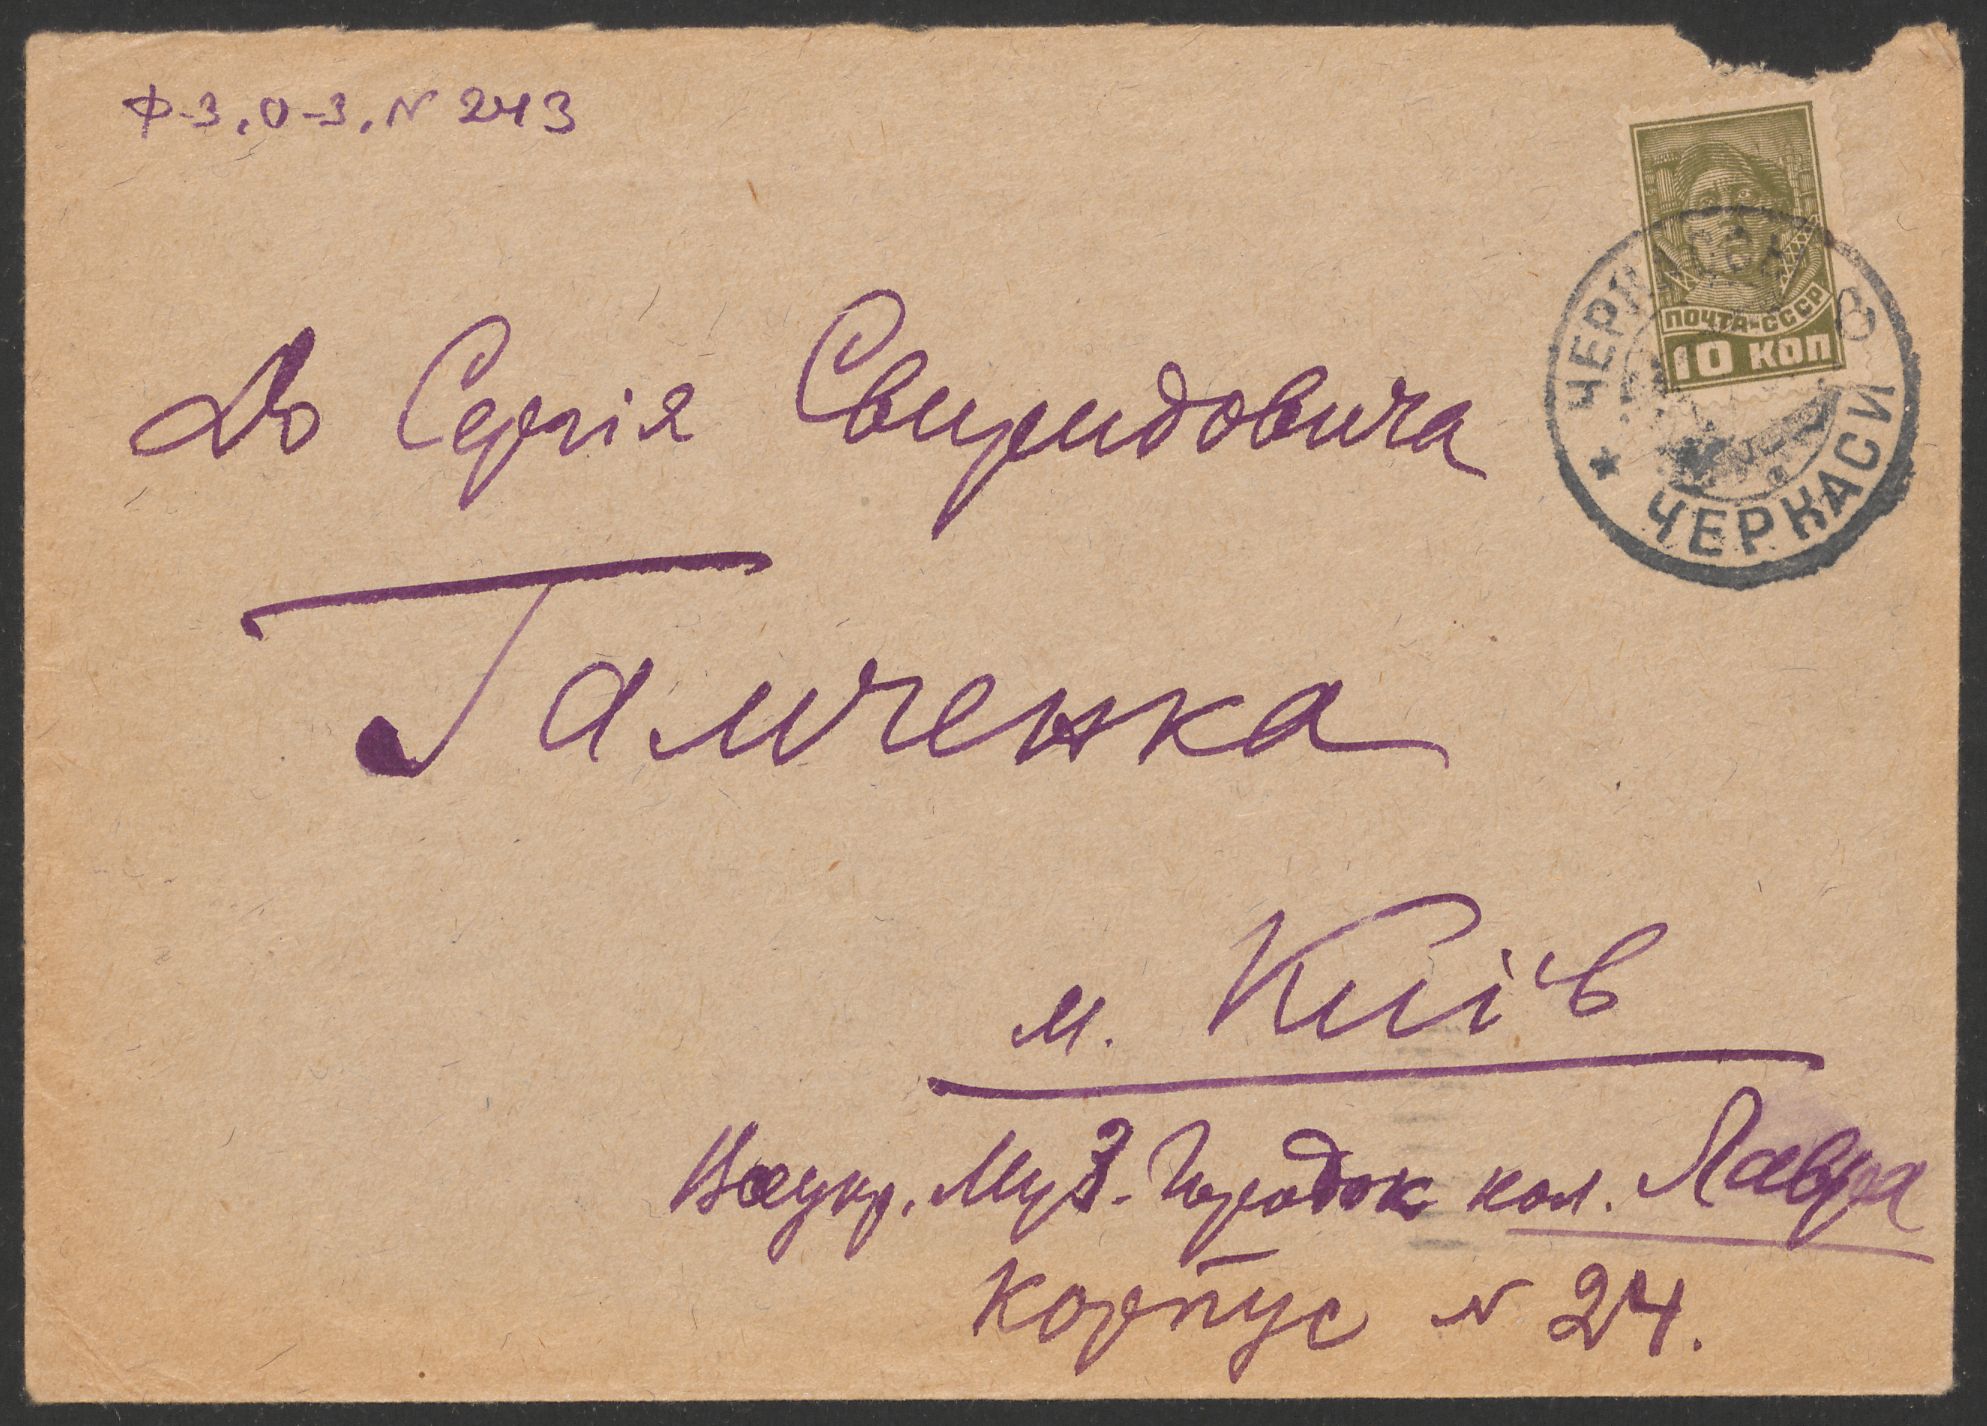 Ф-3, О-3, N 243
ПОЧТА-СССР
10 КОП
ЧЕРК
ЧЕРКАСИ
До Сергія Свиридовича
Гамченка
м. Київ
Всеукр. Муз. Городок кол. Лавра
Корпус N 24.